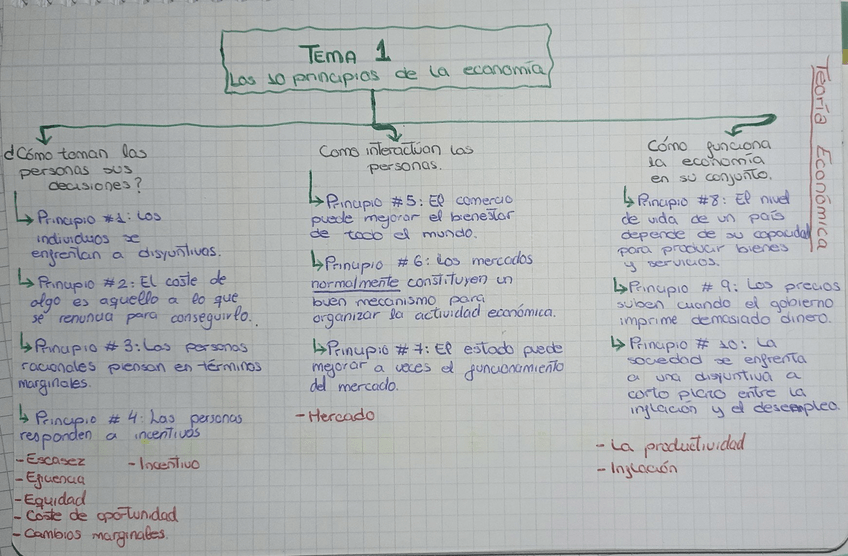 TEMA 1
Los 10 principios de la economía
Teoría Económica
¿Cómo toman las
personas sus
decisiones?
↳ Principio #1: Los
individuos se
enfrentan a disyuntivas.
↳ Principio #2: El coste de
algo es aquello a lo que
se renuncia para conseguirlo.
↳ Principio #3: Las personas
racionales piensan en términos
marginales.
↳ Principio #4: Las personas
responden a incentivos
- Escasez - Incentivo
- Eficiencia
- Equidad
- Coste de oportunidad
- Cambios marginales.
Como interactúan las
personas.
↳ Principio #5: El comercio
puede mejorar el bienestar
de todo el mundo.
↳ Principio #6: Los mercados
normalmente constituyen un
buen mecanismo para
organizar la actividad económica.
↳ Principio #7: El estado puede
mejorar a veces el funcionamiento
del mercado.
- Mercado
Cómo funciona
la economía
en su conjunto.
↳ Principio #8: El nivel
de vida de un país
depende de su capacidad
para producir bienes
y servicios.
↳ Principio #9: Los precios
suben cuando el gobierno
imprime demasiado dinero.
↳ Principio #10: La
sociedad se enfrenta
a una disyuntiva a
corto plazo entre la
inflación y el desempleo.
- La productividad
- Inflación